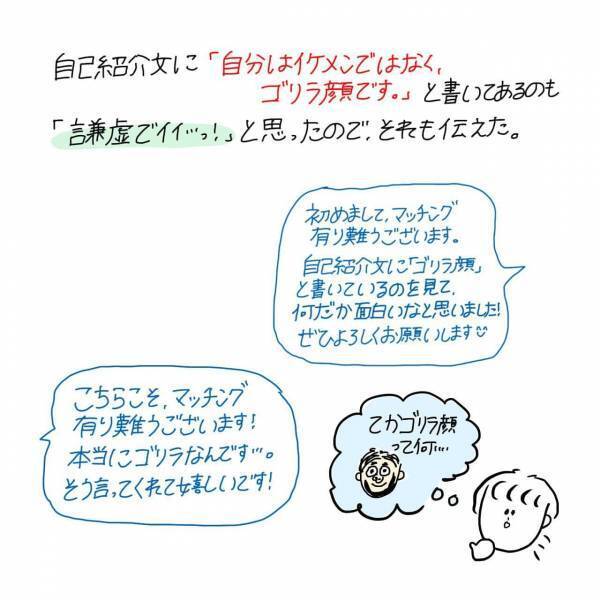 自己紹介文に「自分はイケメンではなく、
ゴリラ顔です。」と書いてあるのも
「謙虚でイイ…っ!」と思ったので、それも伝えた。
初めまして、マッチング
有り難うございます。
自己紹介文に「ゴリラ顔」
と書いているのを見て、
何だか面白いなと思いました!
ぜひよろしくお願いします
こちらこそ、マッチング
有り難うございます!
本当にゴリラなんです…。
そう言ってくれて嬉しいです!
てかゴリラ顔
って何…